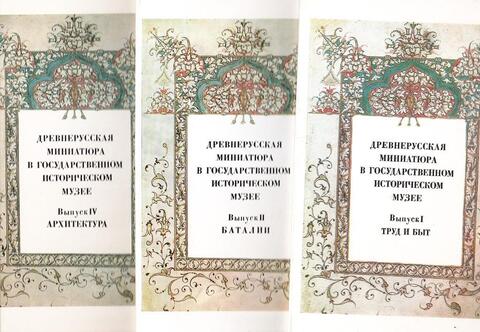 ДРЕВНЕРУССКАЯ
МИНИАТЮРА
В ГОСУДАРСТВЕННОМ
ИСТОРИЧЕСКОМ
МУЗЕЕ
Выпуск IV
АРХИТЕКТУРА
ДРЕВНЕРУССКАЯ
МИНИАТЮРА
В ГОСУДАРСТВЕННОМ
ИСТОРИЧЕСКОМ
МУЗЕЕ
Выпуск II
БАТАЛИИ
ДРЕВНЕРУССКАЯ
МИНИАТЮРА
В ГОСУДАРСТВЕННОМ
ИСТОРИЧЕСКОМ
МУЗЕЕ
Выпуск I
ТРУД И БЫТ